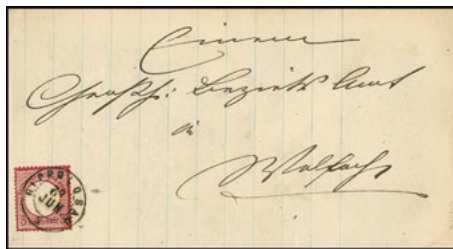 Einem
Großh: Bezirks Amt
in
Wolfach
RIPPOLDSAU
6
JUN